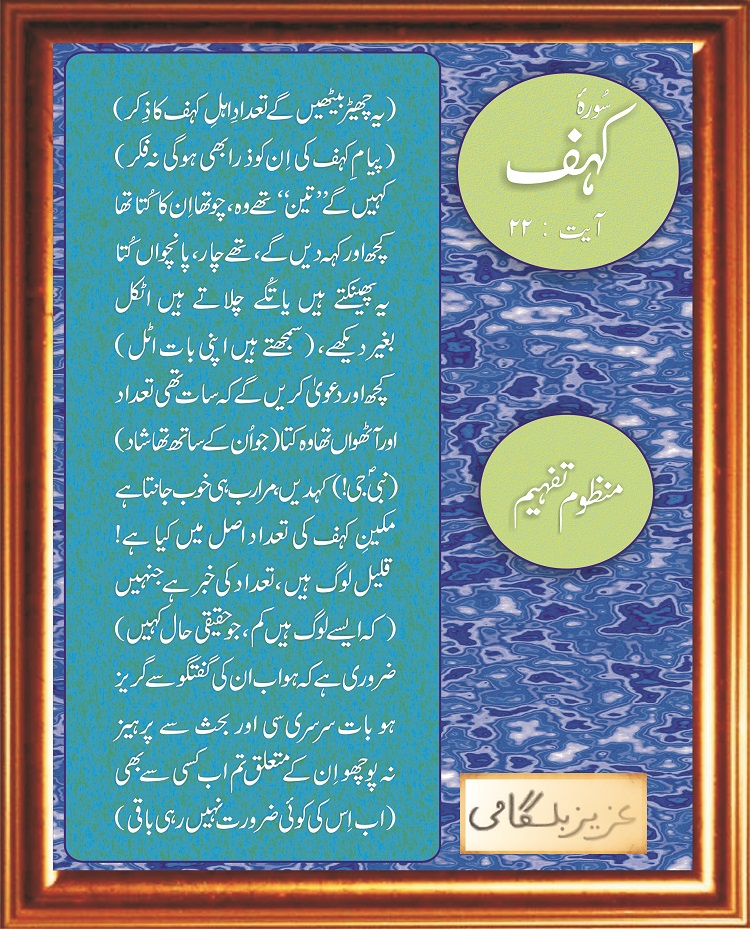 سُورۂ
کہف
آیت : ۲۲
(یہ چھیڑ بیٹھیں گے تعدادِ اہلِ کہف کا ذِکر)
(پیامِ کہف کی اِن کو ذرا بھی ہوگی نہ فکر)
کہیں گے ”تین“ تھے وہ، چوتھا اِن کا کُتا تھا
کچھ اور کہہ دیں گے، تھے چار، پانچواں کُتا
یہ پھینکتے ہیں یا تُکے چلاتے ہیں اٹکل
بغیر دیکھے، (سمجھتے ہیں اپنی بات اٹل)
کچھ اور دعویٰ کریں گے کہ سات تھی تعداد
اور آٹھواں تھا وہ کتا (جو اُن کے ساتھ تھا شاد)
(نبیؐ جی!) کہدیں، مرا رب ہی خوب جانتا ہے
مکینِ کہف کی تعداد اصل میں کیا ہے!
قلیل لوگ ہیں، تعداد کی خبر ہے جنہیں
(کہ ایسے لوگ ہیں کم، جو حقیقی حال کہیں)
ضروری ہے کہ ہو اب ان کی گفتگو سے گریز
ہو بات سرسری سی اور بحث سے پرہیز
نہ پوچھو اِن کے متعلق تم اب کسی سے بھی
(اب اِس کی کوئی ضرورت نہیں رہی باقی)
منظوم تفہیم
عزیز بلگامی